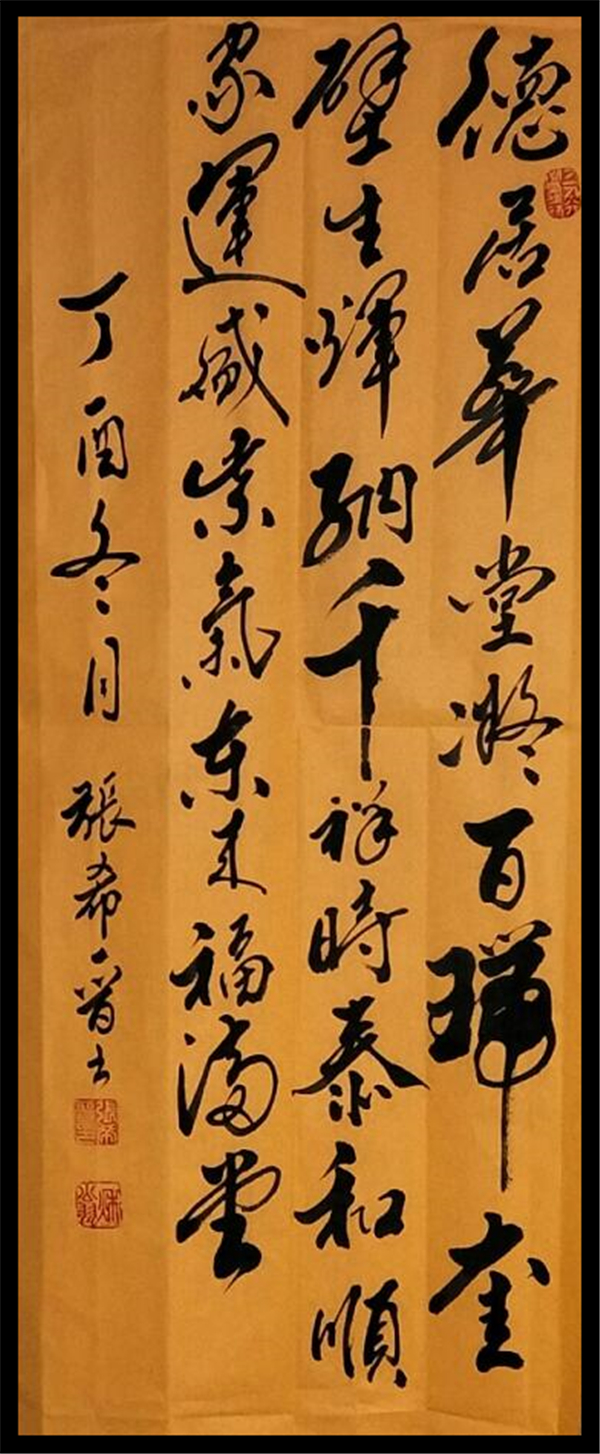 德居華堂凝百瑞奎
壁生輝納千祥時泰和順
家運盛紫氣東來福滿堂
丁酉冬月 張希晋书